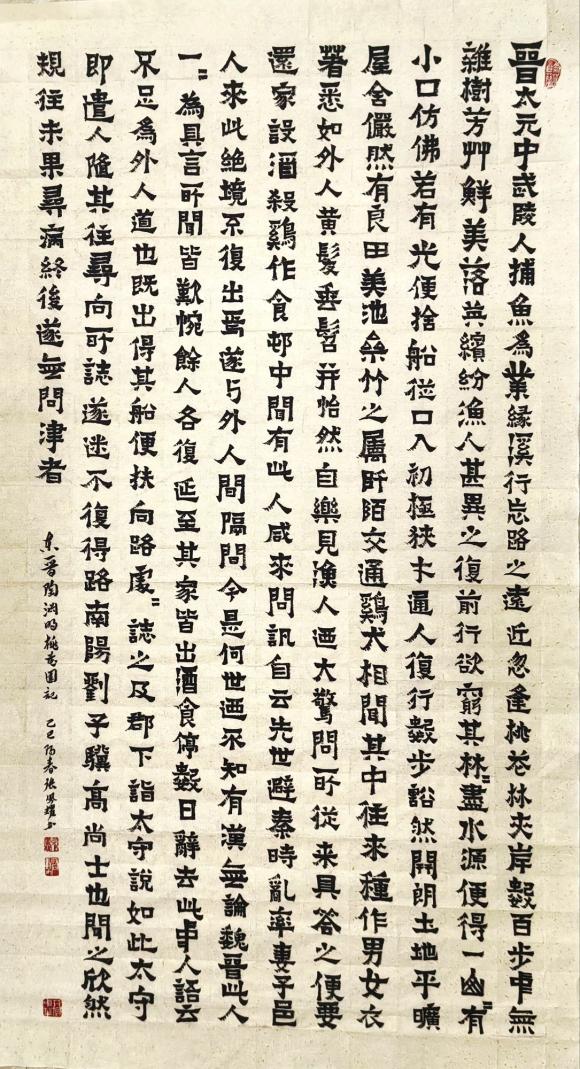 晉太元中武陵人捕魚為業緣溪行忘路之遠近忽逢桃花林夾岸數百步中無
雜樹芳艸鮮美落英繽紛漁人甚異之復前行欲窮其林〻盡水源便得一山〻有
小口仿佛若有光便捨船從口入初極狹才通人復行數步豁然開朗土地平曠
屋舍儼然有良田美池桑竹之屬阡陌交通鷄犬相聞其中往來種作男女衣
著悉如外人黃髮垂髫并怡然自樂見漁人迺大驚問所從來具答之便要
還家設酒殺鷄作食邨中聞有此人咸來問訊自云先世避秦時亂率妻子邑
人來此絶境不復出焉遂与外人間隔問今是何世迺不知有漢無論魏晉此人
一〻為具言所聞皆歎惋餘人各復延至其家皆出酒食停數日辭去此中人語云
不足為外人道也既出得其船便扶向路處〻誌之及郡下詣太守說如此太守
即遣人隨其往尋向所誌遂迷不復得路南陽劉子驥高尚士也聞之欣然
規往未果尋病終後遂無問津者
东晉陶渊明桃花園記 乙巳陽春張鳳耀书